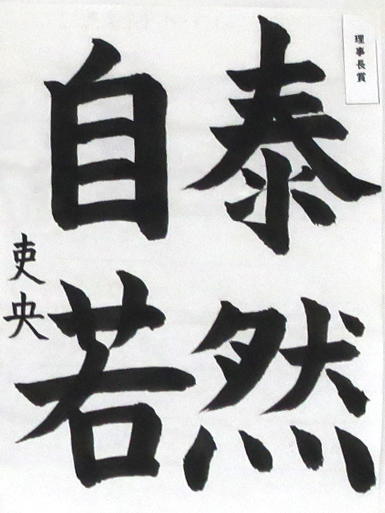 理事長賞
泰然
自若
吏央